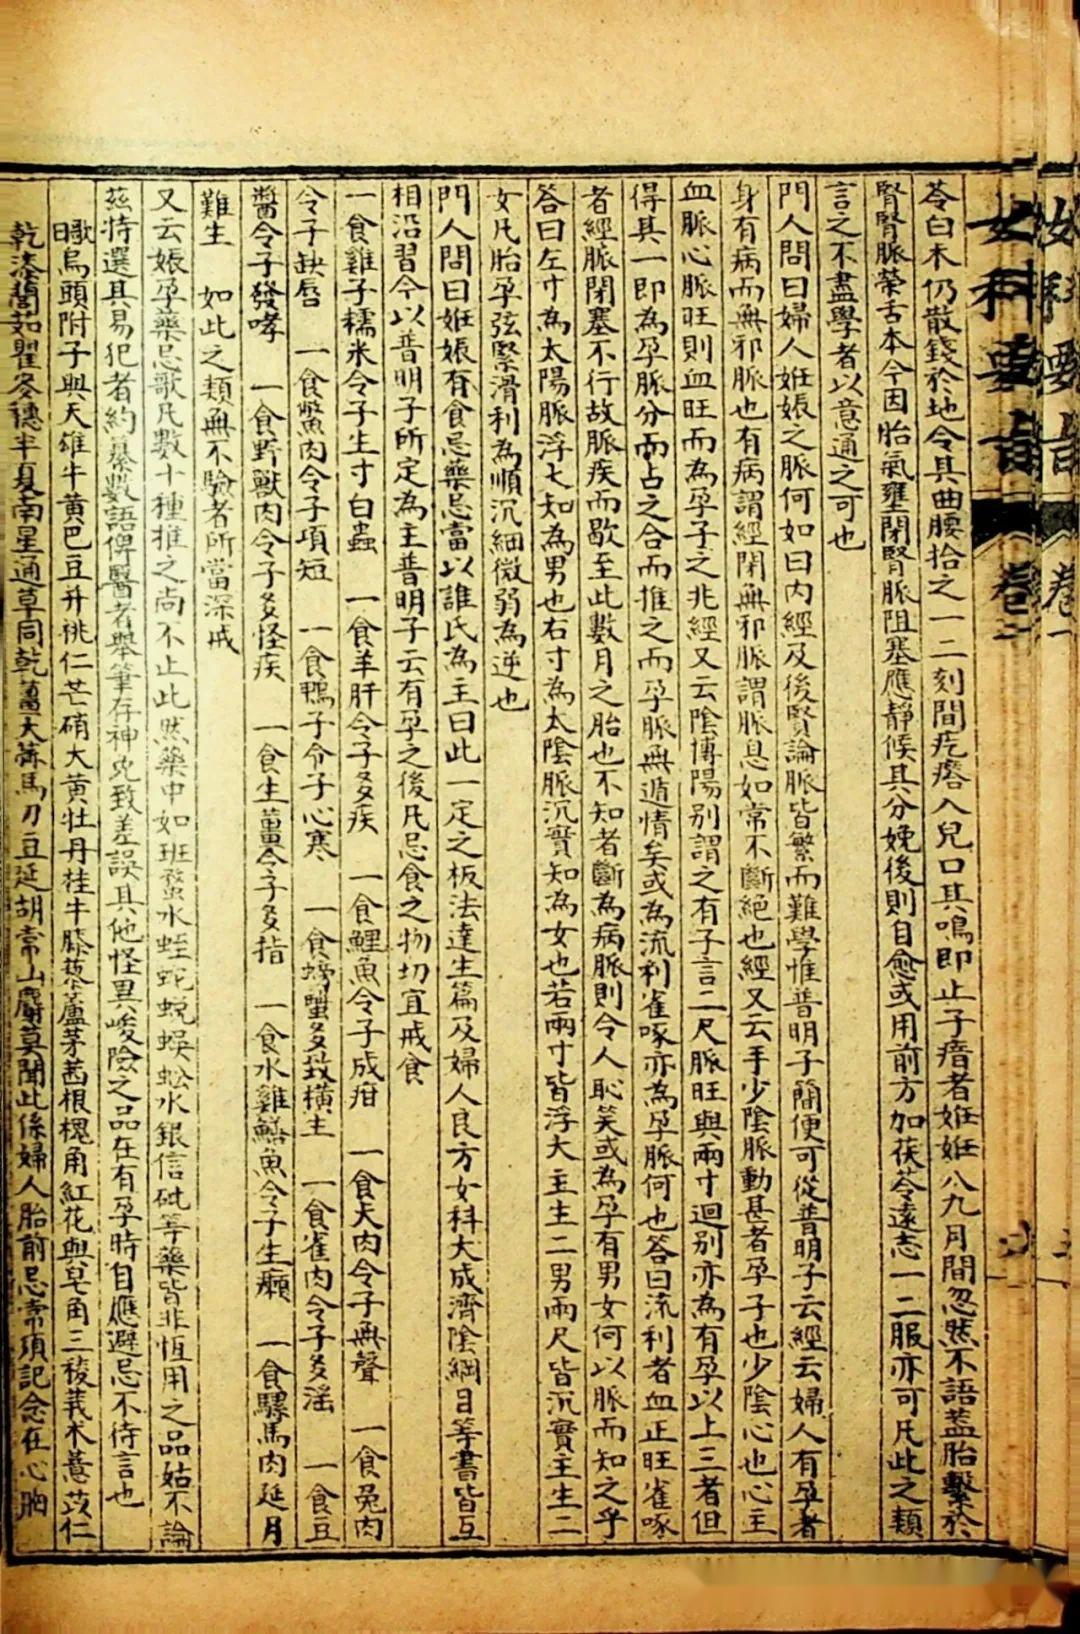 女科要旨 卷一
苓白木仍散錢於地令其曲腰拾之一二刻間疙瘩入兒口其鳴即止子瘖者姙娠八九月間忽然不語蓋胎繫於
腎腎脈榮舌本今因胎氣壅閉腎脈阻塞應靜候其分娩後則自愈或用前方加茯苓遠志一二服亦可凡此之類
言之不盡學者以意通之可也
門人問曰婦人姙娠之脈何如曰內經及後賢論脈皆繁而難學惟普明子簡便可從普明子云經云婦人有孕者
身有病而無邪脈也有病謂經閉無邪脈謂脈息如常不斷絕也經又云手少陰脈動甚者孕子也少陰心也心主
血脈心脈旺則血旺而為孕子之兆經又云陰博陽別謂之有子言二尺脈旺與兩寸迥別亦為有孕以上三者但
得其一即為孕脈分而占之合而推之而孕脈無遁情矣或為流利雀啄亦為孕脈何也答曰流利者血正旺雀啄
者經脈閉塞不行故脈疾而歇至此數月之胎也不知者斷為病脈則令人恥笑或為孕有男女何以脈而知之乎
答曰左寸為太陽脈浮大知為男也右寸為太陰脈沉實知為女也若兩寸皆浮大主生二男兩尺皆沉實主生二
女凡胎孕弦緊滑利為順沉細微弱為逆也
門人問曰姙娠有食忌藥忌當以誰氏為主曰此一定之板法達生篇及婦人良方女科大成濟陰綱目等書皆互
相沿習今以普明子所定為主普明子云有孕之後凡忌食之物切宜戒食
一食雞子糯米令子生寸白蟲 一食羊肝令子多疾 一食鯉魚令子成疳 一食犬肉令子無聲 一食兔肉
令子缺唇 一食鱉肉令子項短 一食鴨子令子心寒 一食螃蟹多致橫生 一食雀肉令子多淫 一食豆
醬令子發哮 一食野獸肉令子多怪疾 一食生薑令子多指 一食水雞鱔魚令子生癩 一食騾馬肉延月
難生 如此之類無不驗者所當深戒
又云娠孕藥忌歌凡數十種推之尚不止此然藥中如班蝥水蛭蛇蛻蜈蚣水銀信砒等藥皆非恆用之品姑不論
茲特選其易犯者約纂數語俾醫者舉筆存神免致差誤其他怪異峻險之品在有孕時自應避忌不待言也
歌曰烏頭附子與天雄牛黃巴豆并桃仁芒硝大黃牡丹桂牛膝藜蘆茅茜根槐角紅花與皂角三稜莪朮薏苡仁
乾漆䕡茹瞿麥穗半夏南星通草同乾薑大蒜馬刀豆延胡常山麝莫聞此係婦人胎前忌常須記念在心胸